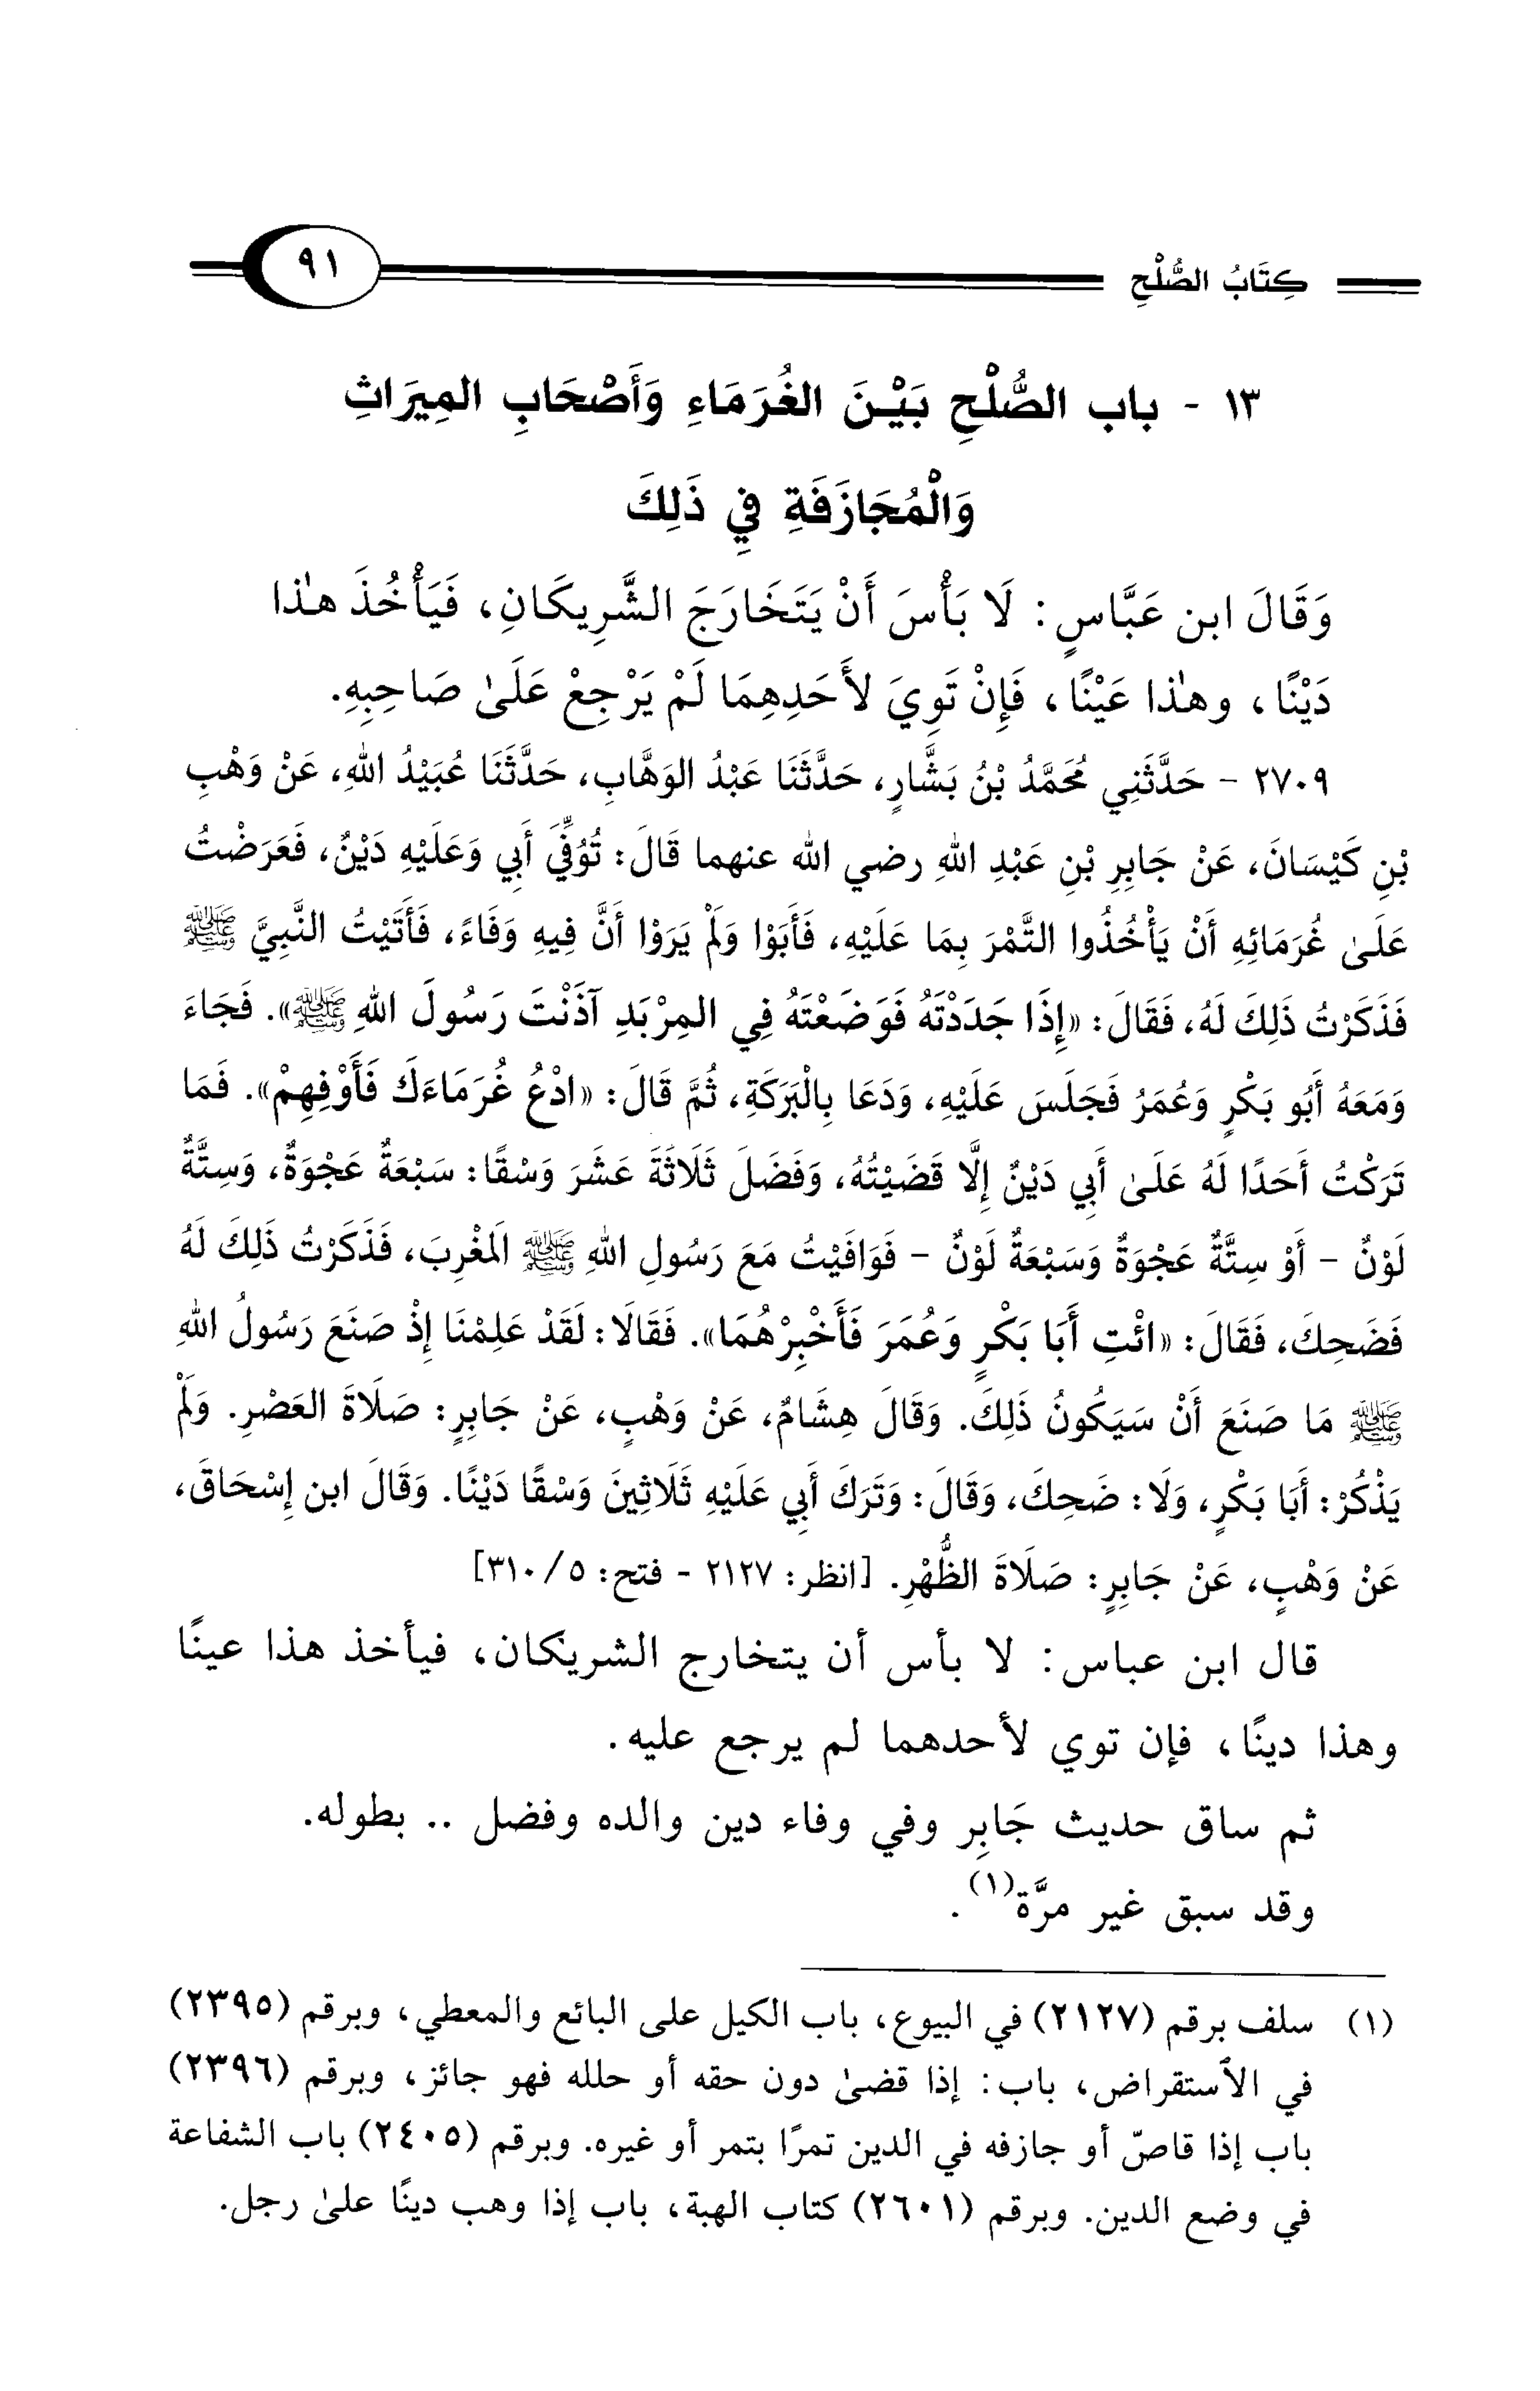 كِتَابُ الصُّلْحِ
٩١
١٣ - باب الصُّلْحِ بَيْنَ الغُرَمَاءِ وَأَصْحَابِ المِيرَاثِ
وَالْمُجَازَفَةِ فِي ذَلِكَ
وَقَالَ ابن عَبَّاسٍ: لَا بَأْسَ أَنْ يَتَخَارَجَ الشَّرِيكَانِ، فَيَأْخُذَ هٰذا
دَيْنًا، وهٰذا عَيْنًا، فَإِنْ تَوِيَ لأَحَدِهِمَا لَمْ يَرْجِعْ عَلَىٰ صَاحِبِهِ.
٢٧٠٩ - حَدَّثَنِي مُحَمَّدُ بْنُ بَشَّارٍ، حَدَّثَنَا عَبْدُ الوَهَّابِ، حَدَّثَنَا عُبَيْدُ اللهِ، عَنْ وَهْبِ
بْنِ كَيْسَانَ، عَنْ جَابِرِ بْنِ عَبْدِ اللهِ رضي الله عنهما قَالَ: تُوُفِّيَ أَبِي وَعَلَيْهِ دَيْنٌ، فَعَرَضْتُ
عَلَىٰ غُرَمَائِهِ أَنْ يَأْخُذُوا التَّمْرَ بِمَا عَلَيْهِ، فَأَبَوْا وَلَمْ يَرَوْا أَنَّ فِيهِ وَفَاءً، فَأَتَيْتُ النَّبِيَّ ﷺ
فَذَكَرْتُ ذَلِكَ لَهُ، فَقَالَ: «إِذَا جَدَدْتَهُ فَوَضَعْتَهُ فِي المِرْبَدِ آذَنْتَ رَسُولَ اللهِ ﷺ». فَجَاءَ
وَمَعَهُ أَبُو بَكْرٍ وَعُمَرُ فَجَلَسَ عَلَيْهِ، وَدَعَا بِالْبَرَكَةِ، ثُمَّ قَالَ: «ادْعُ غُرَمَاءَكَ فَأَوْفِهِمْ». فَمَا
تَرَكْتُ أَحَدًا لَهُ عَلَىٰ أَبِي دَيْنٌ إِلَّا قَضَيْتُهُ، وَفَضَلَ ثَلَاثَةَ عَشَرَ وَسْقًا: سَبْعَةٌ عَجْوَةٌ، وَسِتَّةٌ
لَوْنٌ - أَوْ سِتَّةٌ عَجْوَةٌ وَسَبْعَةٌ لَوْنٌ - فَوَافَيْتُ مَعَ رَسُولِ اللهِ ﷺ الَمغْرِبَ، فَذَكَرْتُ ذَلِكَ لَهُ
فَضَحِكَ، فَقَالَ: «ائْتِ أَبَا بَكْرٍ وَعُمَرَ فَأَخْبِرْهُمَا». فَقَالَا: لَقَدْ عَلِمْنَا إِذْ صَنَعَ رَسُولُ اللهِ
ﷺ مَا صَنَعَ أَنْ سَيَكُونُ ذَلِكَ. وَقَالَ هِشَامٌ، عَنْ وَهْبٍ، عَنْ جَابِرٍ: صَلَاةَ العَصْرِ. وَلَمْ
يَذْكُرْ: أَبَا بَكْرٍ، وَلَا: ضَحِكَ، وَقَالَ: وَتَرَكَ أَبِي عَلَيْهِ ثَلَاثِينَ وَسْقًا دَيْنًا. وَقَالَ ابن إِسْحَاقَ،
عَنْ وَهْبٍ، عَنْ جَابِرٍ: صَلَاةَ الظُّهْرِ. [انظر: ٢١٢٧ - فتح: ٥/٣١٠]
قال ابن عباس: لا بأس أن يتخارج الشريكان، فيأخذ هذا عينًا
وهذا دينًا، فإن توي لأحدهما لم يرجع عليه.
ثم ساق حديث جَابِر وفي وفاء دين والده وفضل .. بطوله.
وقد سبق غير مرَّة(١).
(١) سلف برقم (٢١٢٧) في البيوع، باب الكيل على البائع والمعطي، وبرقم (٢٣٩٥)
في الأستقراض، باب: إذا قضىٰ دون حقه أو حلله فهو جائز، وبرقم (٢٣٩٦)
باب إذا قاصّ أو جازفه في الدين تمرًا بتمر أو غيره. وبرقم (٢٤٠٥) باب الشفاعة
في وضع الدين. وبرقم (٢٦٠١) كتاب الهبة، باب إذا وهب دينًا علىٰ رجل.